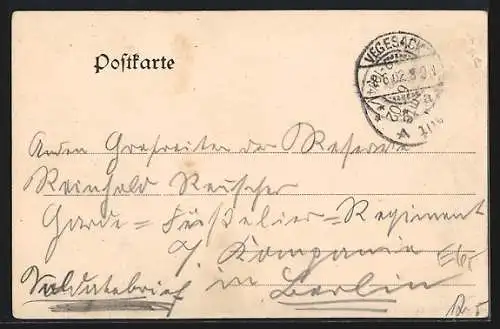 Postkarte
VEGESACK
An den Gefreiten der Reserve
Reinhold Reuscher
Garde=Füselier=Regiment
7. Kompanie
Soldatenbrief in Berlin